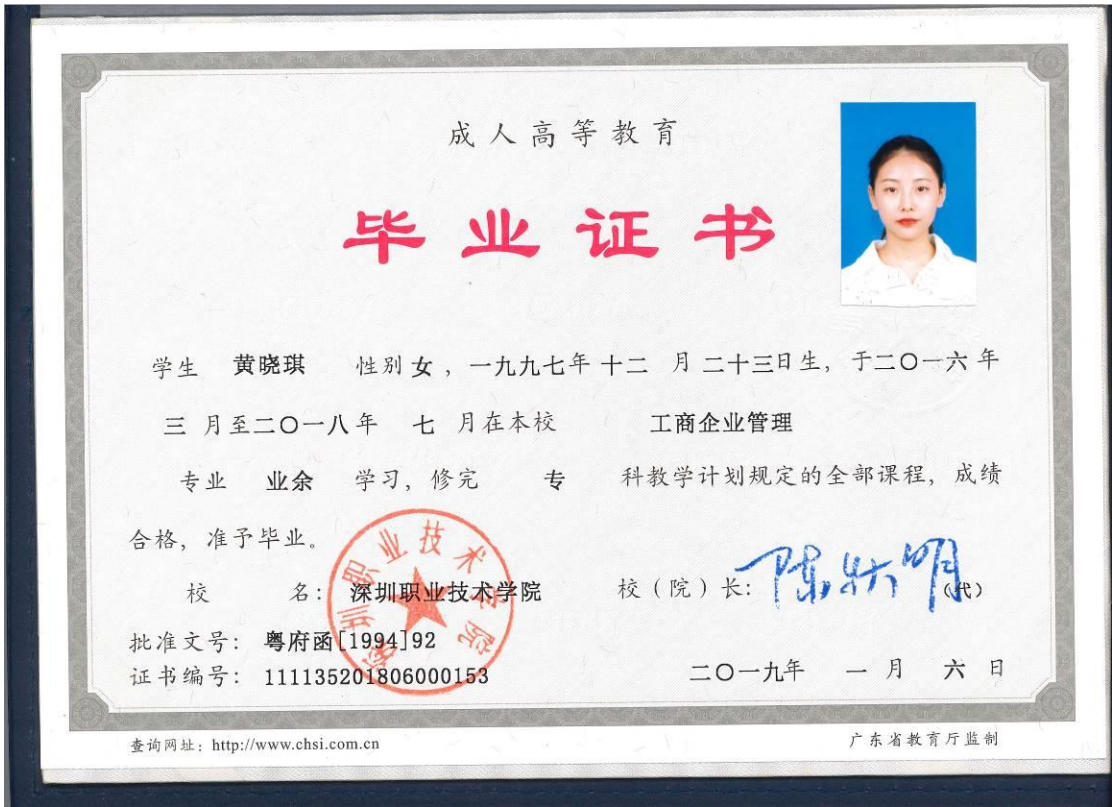 成人高等教育
毕业证书
学生 黄晓琪 性别 女 ，一九九七年 十二 月 二十三日生，于二〇一六年
三 月至二〇一八年 七 月在本校 工商企业管理
专业 业余 学习，修完 专 科教学计划规定的全部课程，成绩
合格，准予毕业。
校 名：深圳职业技术学院 校（院）长： （代）
批准文号：粤府函[1994]92
证书编号：111135201806000153 二〇一九年 一 月 六 日
深圳职业技术学院
查询网址：http://www.chsi.com.cn 广东省教育厅监制